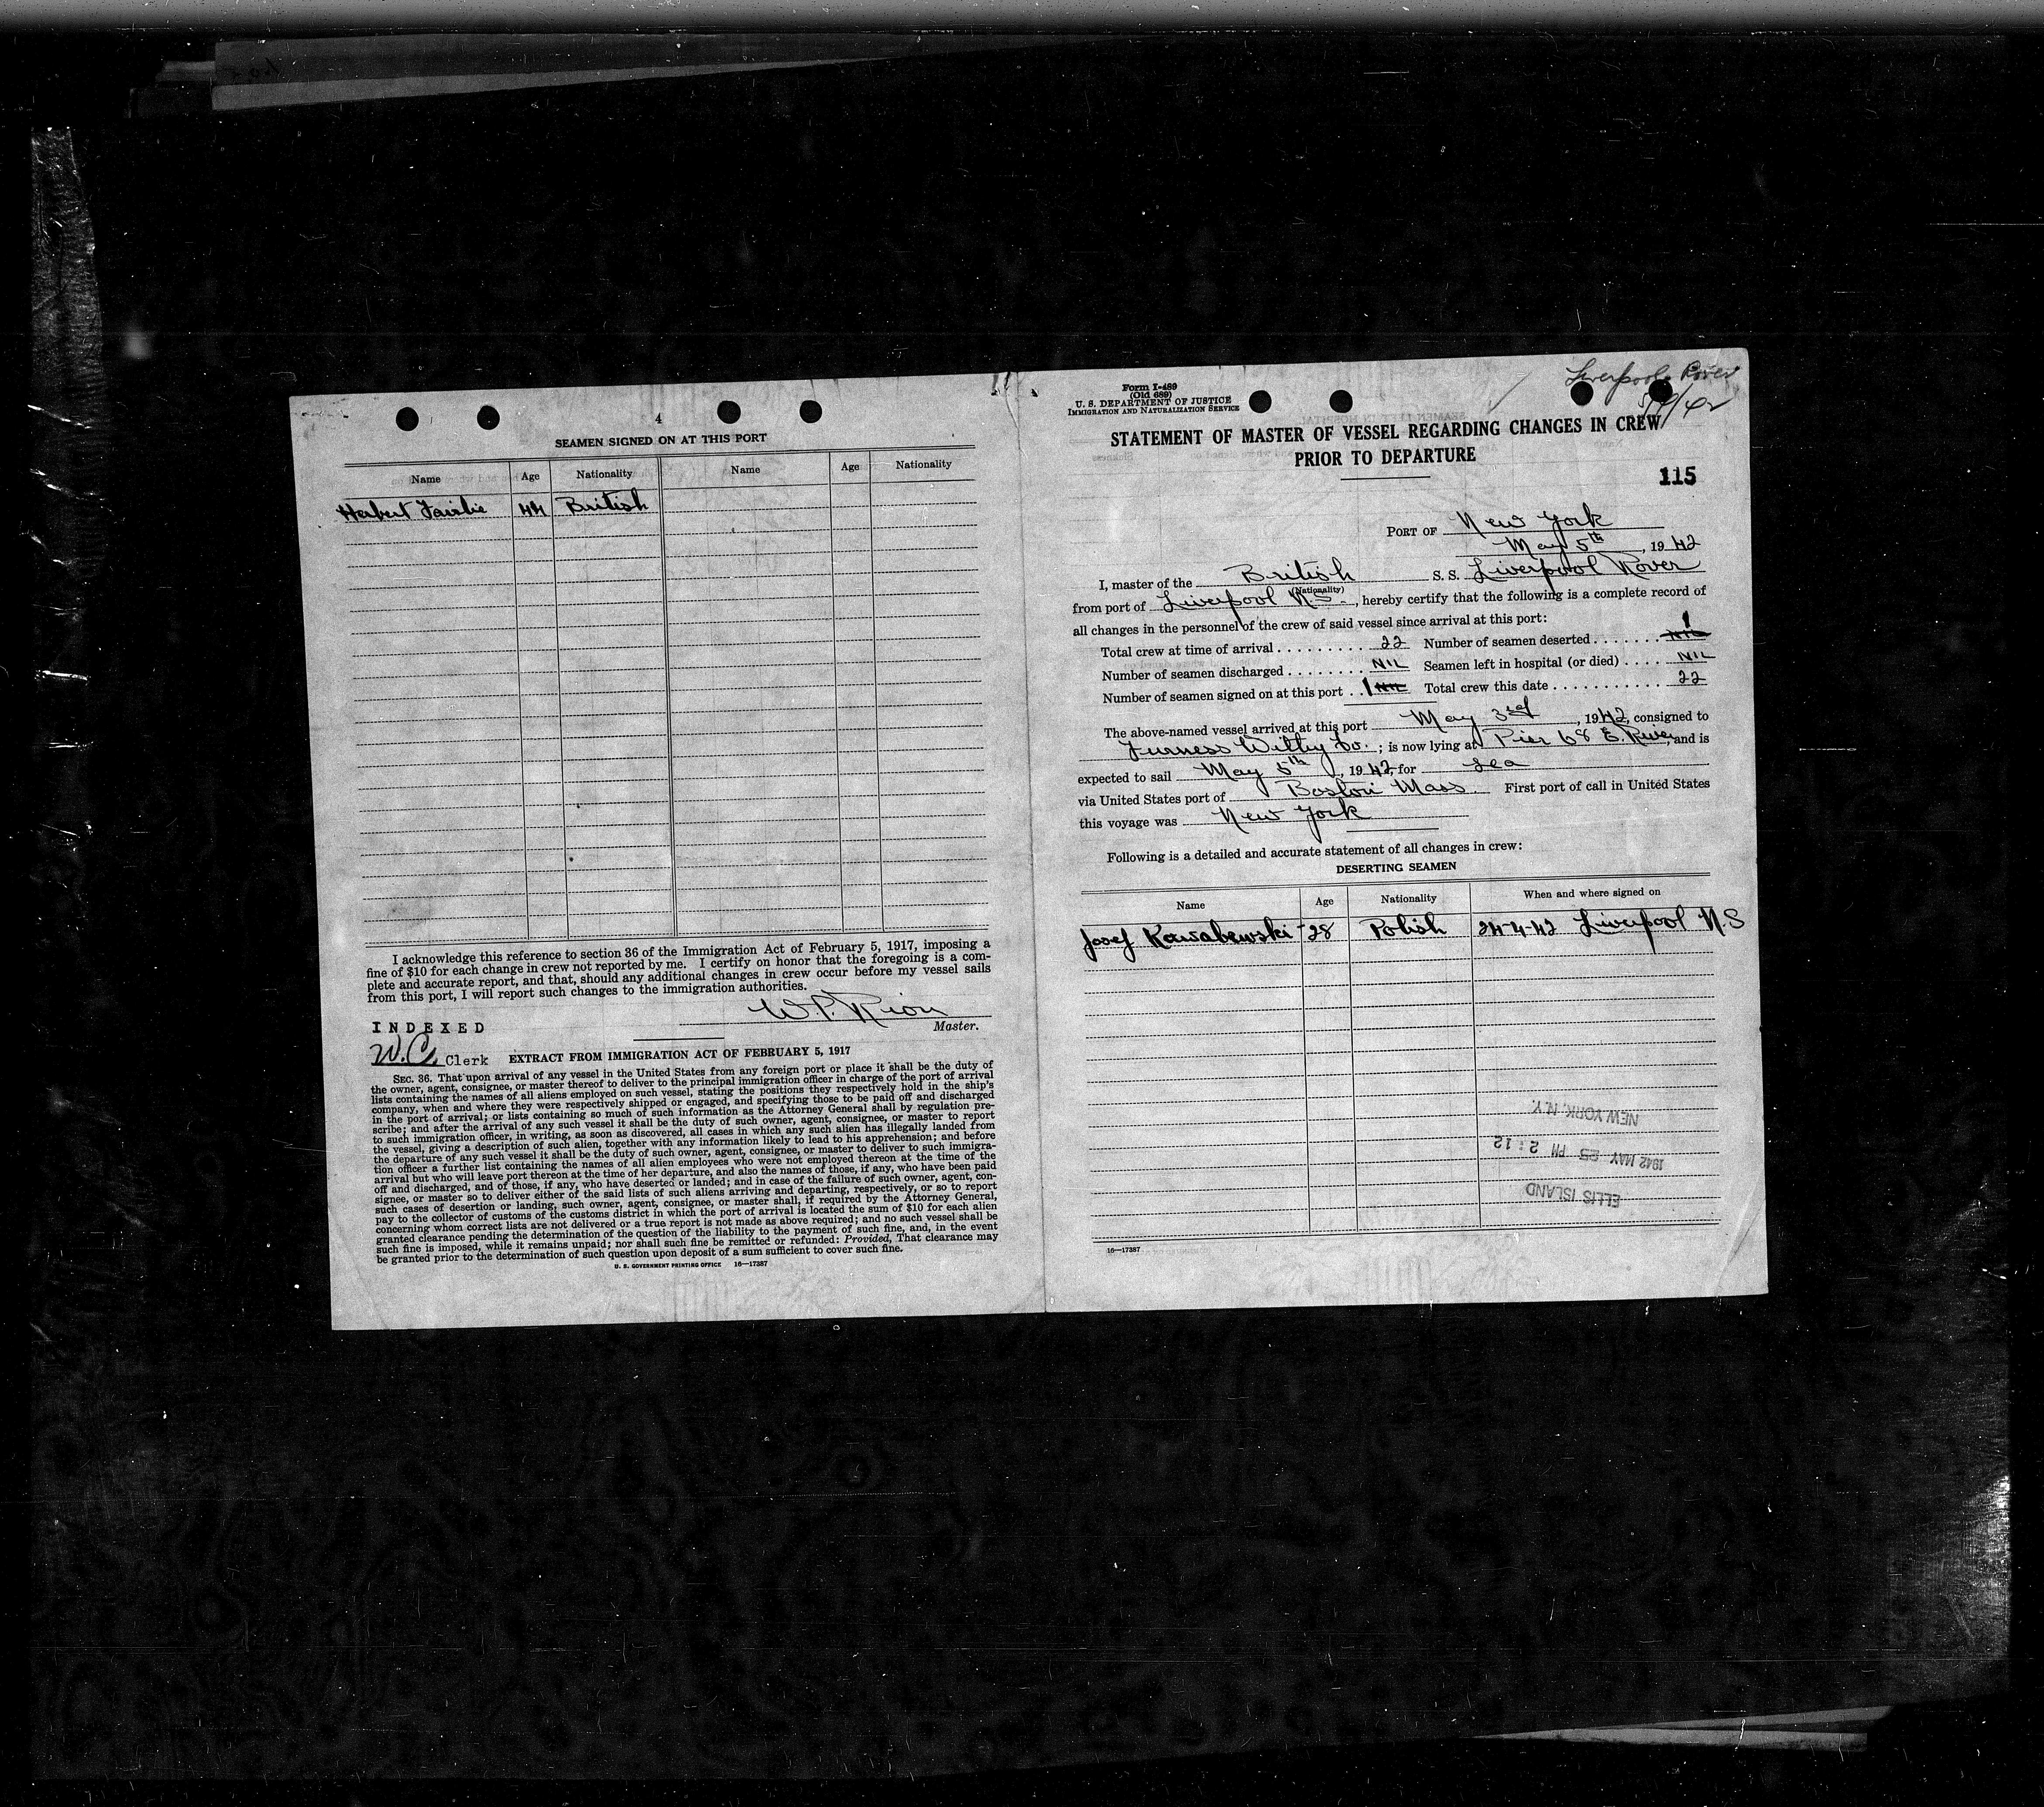 4
SEAMEN SIGNED ON AT THIS PORT
Name Age Nationality Name Age Nationality
Herbert Fairlie 44 British
I acknowledge this reference to section 36 of the Immigration Act of February 5, 1917, imposing a
fine of $10 for each change in crew not reported by me. I certify on honor that the foregoing is a com-
plete and accurate report, and that, should any additional changes in crew occur before my vessel sails
from this port, I will report such changes to the immigration authorities.
W. P.
Master.
INDEXED
W.C. Clerk
EXTRACT FROM IMMIGRATION ACT OF FEBRUARY 5, 1917
SEC. 36. That upon arrival of any vessel in the United States from any foreign port or place it shall be the duty of
the owner, agent, consignee, or master thereof to deliver to the principal immigration officer in charge of the port of arrival
lists containing the names of all aliens employed on such vessel, stating the positions they respectively hold in the ship's
company, when and where they were respectively shipped or engaged, and specifying those to be paid off and discharged
in the port of arrival; or lists containing so much of such information as the Attorney General shall by regulation pre-
scribe; and after the arrival of any such vessel it shall be the duty of such owner, agent, consignee, or master to report
to such immigration officer, in writing, as soon as discovered, all cases in which any such alien has illegally landed from
the vessel, giving a description of such alien, together with any information likely to lead to his apprehension; and before
the departure of any such vessel it shall be the duty of such owner, agent, consignee, or master to deliver to such immigra-
tion officer a further list containing the names of all alien employees who were not employed thereon at the time of the
arrival but who will leave port thereon at the time of her departure, and also the names of those, if any, who have been paid
off and discharged, and of those, if any, who have deserted or landed; and in case of the failure of such owner, agent, con-
signee, or master so to deliver either of the said lists of such aliens arriving and departing, respectively, or so to report
such cases of desertion or landing, such owner, agent, consignee, or master shall, if required by the Attorney General,
pay to the collector of customs of the customs district in which the port of arrival is located the sum of $10 for each alien
concerning whom correct lists are not delivered or a true report is not made as above required; and no such vessel shall be
granted clearance pending the determination of the question of the liability to the payment of such fine, and, in the event
such fine is imposed, while it remains unpaid; nor shall such fine be remitted or refunded: Provided, That clearance may
be granted prior to the determination of such question upon deposit of a sum sufficient to cover such fine.
U. S. GOVERNMENT PRINTING OFFICE 16—17387
Form I-489
(Old 689)
U. S. DEPARTMENT OF JUSTICE
IMMIGRATION AND NATURALIZATION SERVICE
Liverpool Rover
STATEMENT OF MASTER OF VESSEL REGARDING CHANGES IN CREW
PRIOR TO DEPARTURE
115
PORT OF New York
May 5th, 1942
I, master of the British S. S. Liverpool Rover
(Nationality)
from port of Liverpool N.S., hereby certify that the following is a complete record of
all changes in the personnel of the crew of said vessel since arrival at this port:
Total crew at time of arrival 22 Number of seamen deserted 1
Number of seamen discharged NIL Seamen left in hospital (or died) NIL
Number of seamen signed on at this port 1 NIL Total crew this date 22
The above-named vessel arrived at this port May 3rd, 1942, consigned to
Furness Withy Co.; is now lying at Pier 68 E. River, and is
expected to sail May 5th, 1942, for Sea
via United States port of Boston Mass First port of call in United States
this voyage was New York
Following is a detailed and accurate statement of all changes in crew:
DESERTING SEAMEN
Name Age Nationality When and where signed on
Josef Kawabewski 28 Polish 24-4-42 Liverpool N.S
NEW YORK, N.Y.
1942 MAY 25 PM 2:12
ELLIS ISLAND
16—17387